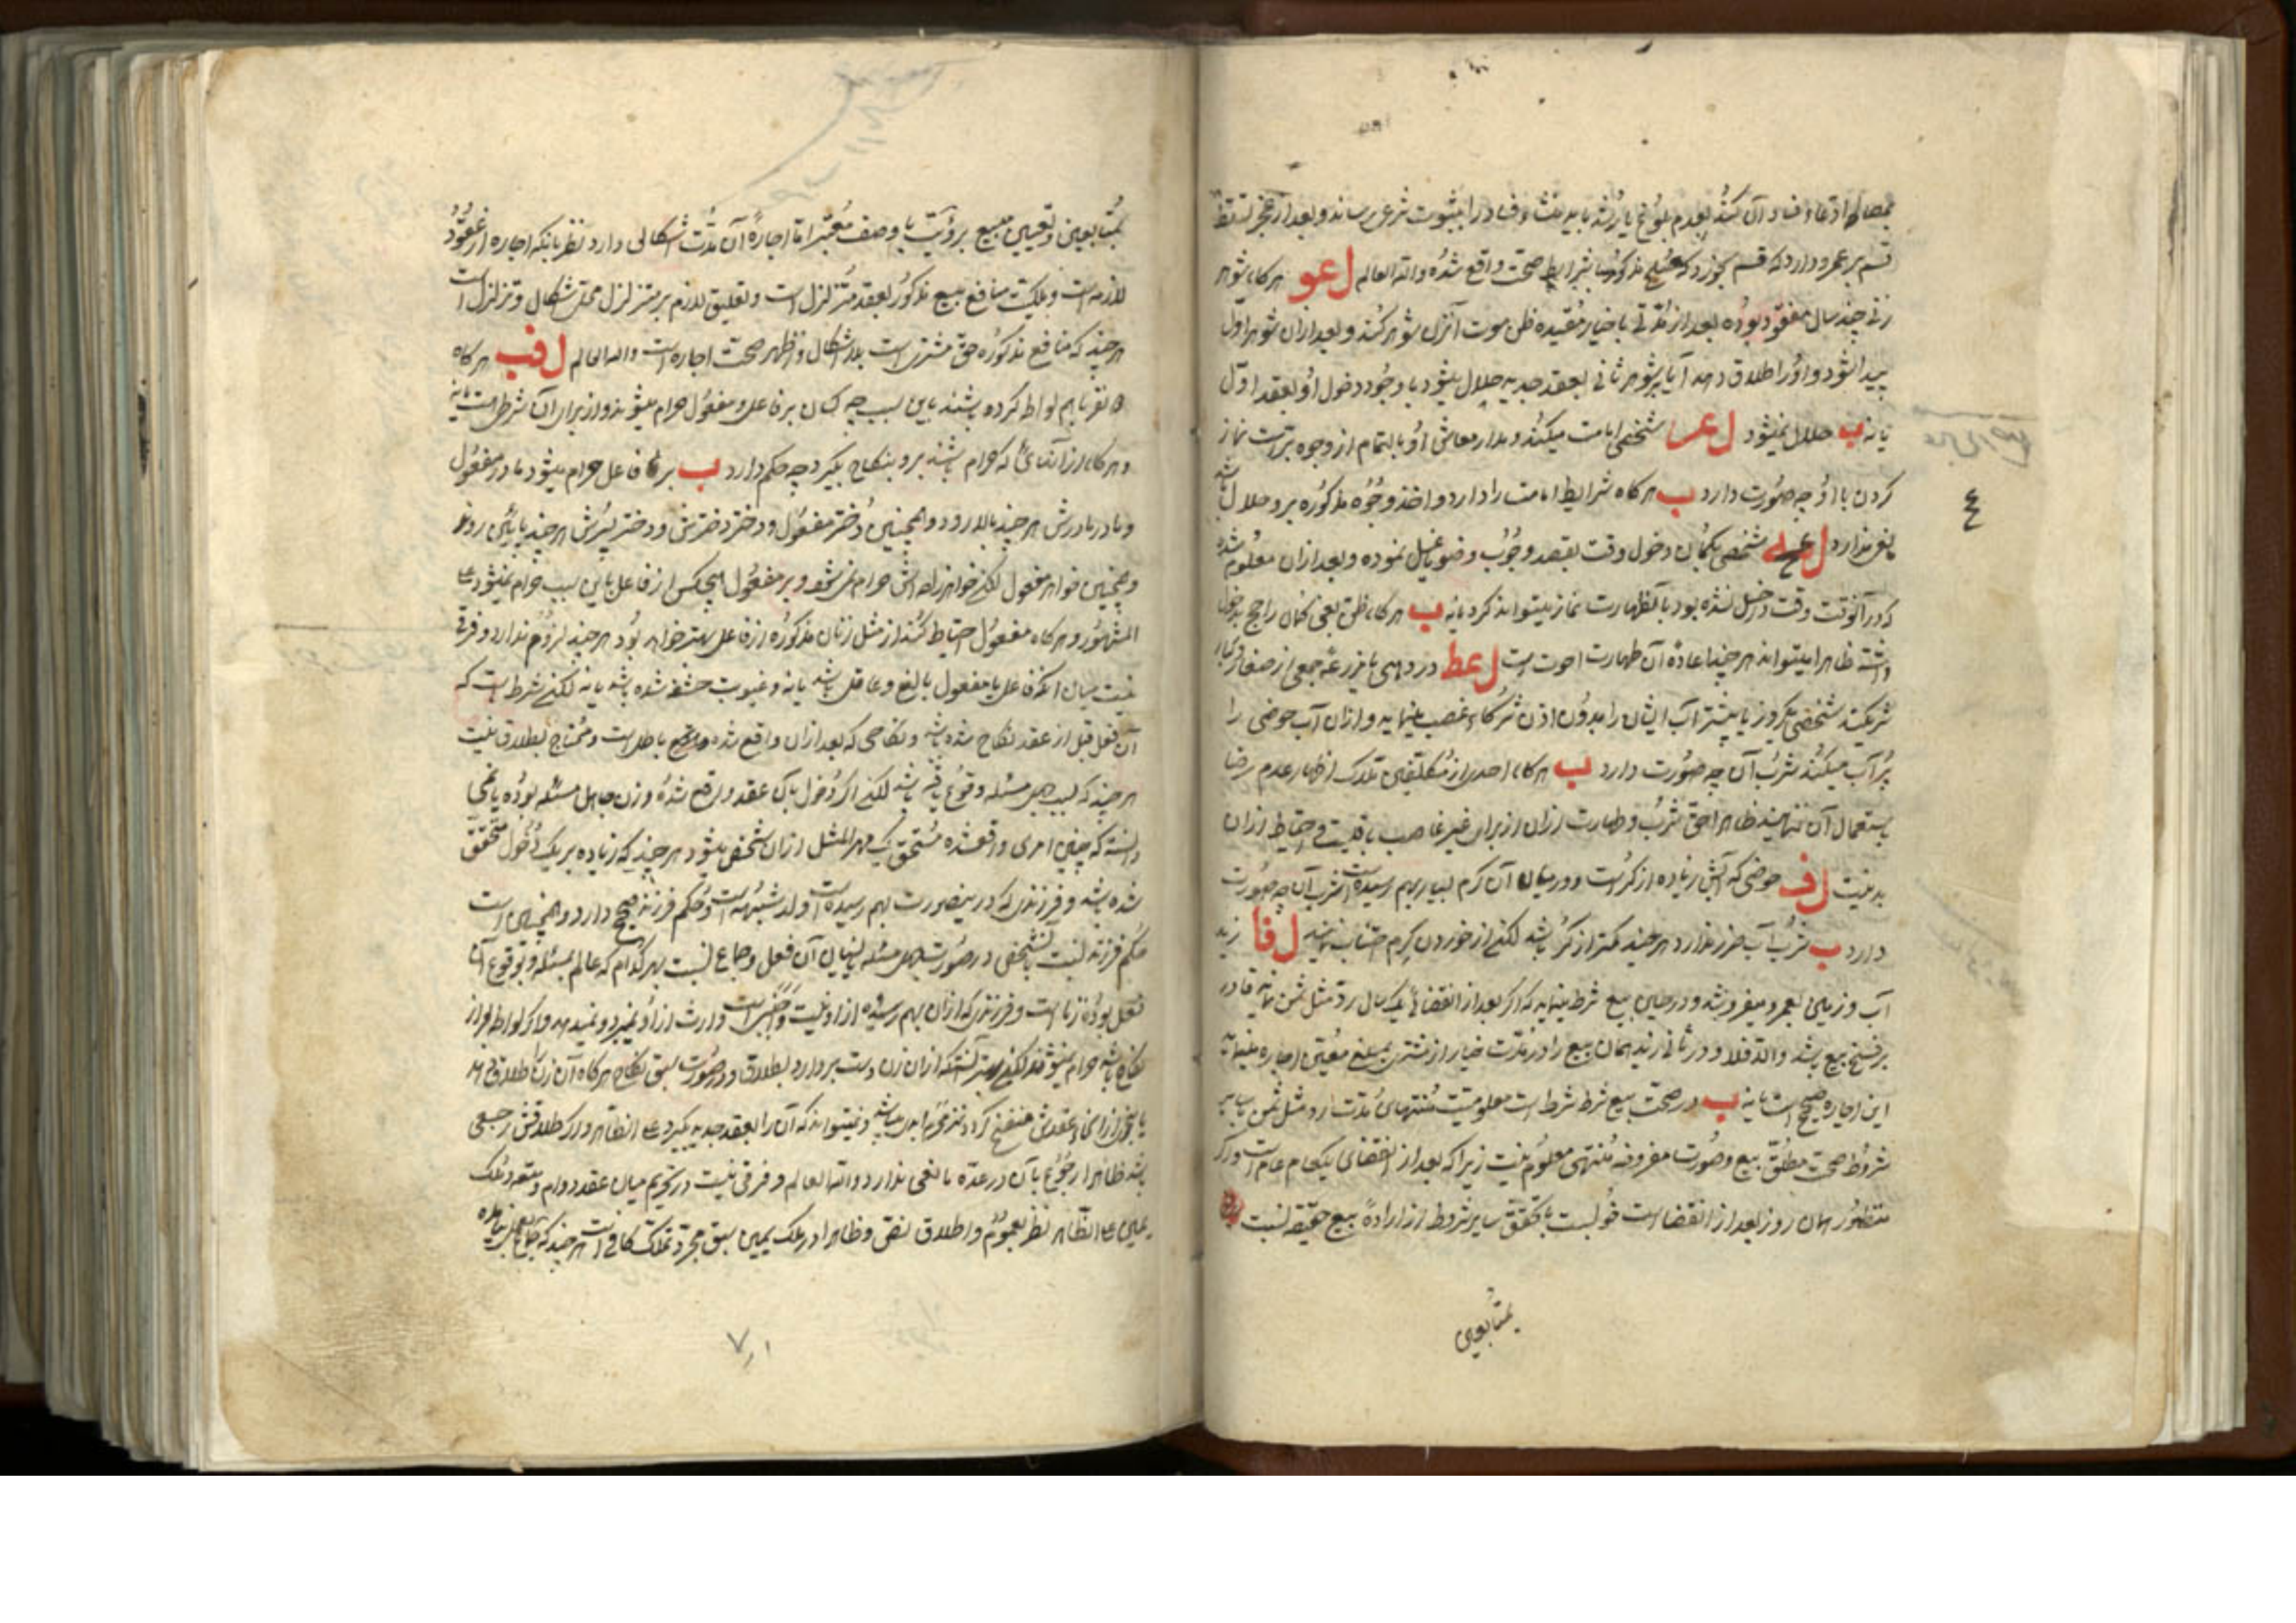 بمصالح ادعاء فساد آن کند بعدم بلوغ یا رشد باید منشاء فساد را بثبوت شرعی برساند و بعد از عجز تسلط
قسم بر عمرو دارد که قسم بخورد که صلح مذکور بشرایط صحت واقع شده والله العالم لعو هرگاه شوهر
زنی چند سال مفقود بوده بعد از مدتی باخبار مفیده ظن موت آنزن شوهر کند و بعد از آن شوهر اول
پیدا شود و او را طلاق دهد آیا بر شوهر ثانی بعقد جدید حلال میشود با وجود دخول او بعقد اول
یا نه ب حلال نمیشود لعز شخصی امامت میکند و مدار معاش او بالتمام از وجوه بریّت نماز
کردن با او چه صورت دارد ب هرگاه شرایط امامت را دارد و اخذ وجوه مذکوره برو حلال باشد
نقص ندارد لعح شخصی بگمان دخول وقت بقصد وجوب وضو یا غسل نموده و بعد از آن معلوم شده
که در آنوقت وقت داخل نشده بود بآنطهارت نماز میتواند کرد یا نه ب هرگاه ظن یعنی گمان راجح بدخول
داشته ظاهرا میتواند هر چند اعاده آن طهارت احوط است لعط در دهی یا مزرعه جمعی از صغار و کبار
شریکند شخصی یکروز یا بیشتر آب ایشان را بدون اذن شرکاء غصب مینماید و از آن آب حوضی را
پر آب میکند شرب آن چه صورت دارد ب هرگاه احدی از مکلفین ملاک اظهار عدم رضا
باستعمال آن ننمایند ظاهرا حق شرب و طهارت از آن از برای غیر غاصب باقیست و احتیاط از آن
بد نیست لف حوضی که آبش زیاده از کر است و در میان آن کرم بسیار بهم رسیده است شرب آن چه صورت
دارد ب شرب آب ضرر ندارد هر چند کمتر از کر باشد لکن از خوردن کرم اجتناب نمایند لفا زید
آب و زمینی بعمرو میفروشد و در حین بیع شرط مینماید که اگر بعد از انقضای یک سال رد مثل ثمن نماید قادر
بر فسخ بیع باشد والا فلا و در ثانی زید همان مبیع را در مدت خیار از مشتری بمبلغ معین اجاره مینماید
این اجاره صحیح است یا نه ب در صحت بیع شرط شرط است معلومیت منتهای مدت رد مثل ثمن با سایر
شروط صحت مطلق بیع و صورت مفروضه منتهی معلوم نیست زیرا که بعد از انقضای یکسال عام است و اگر
منظور همان روز بعد از انقضاست خوبست با تحقق سایر شروط از اراده بیع حقیقة نسبت
بمتابعین
بمتابعین و تعیین مبیع برؤیت یا وصف معتبر اما اجاره آن مدت اشکالی دارد نظر بانکه اجاره از عقود
لازمه است و ملکیت منافع مبیع مذکور بعقد متزلزل است و تعلیق لازم بر متزلزل محل اشکال و تزلزل است
هر چند که منافع مذکوره حق مشتری است بلا اشکال و اظهر صحت اجاره است والله العالم لفب هرگاه
دو نفر با هم لواط کرده باشند باین سبب چه کسان بر فاعل و مفعول حرام میشوند و از برای آن شرطی هست یا نه
و هرگاه از آنهائی که حرام باشند برو بنکاح بگیرد چه حکم دارد ب بر فاعل حرام میشود مادر مفعول
و مادر مادرش هر چند بالا رود و همچنین دختر مفعول و دختر دخترش و دختر پسرش هر چند پائین روند
و همچنین خواهر مفعول لکن خواهرزاده اش حرام نمی شود و بر مفعول هیچکس از فاعل باین سبب حرام نمیشود علی
المشهور و هرگاه مفعول احتیاط کند از مثل زنان مذکوره از فاعل بهتر خواهد بود هر چند لزوم ندارد و فرقی
نیست میان انکه فاعل یا مفعول بالغ و عاقل باشد یا نه و غیبوبت حشفه شده باشد یا نه لکن شرط است که
آن فعل قبل از عقد نکاح شده باشد و نکاحی که بعد از آن واقع شده باطل است و محتاج بطلاق نیست
هر چند که بسبب جهل مسئله وقوع یافته باشد لکن اگر دخول بآن عقد واقع شده و زن جاهل مسئله بوده یا نمی
دانسته که چنین امری واقع شده مستحق یک مهر المثل از آن شخص میشود هر چند که زیاده بر یک دخول متحقق
شده باشد و فرزندی که در ینصورت بهم رسیده است ولد شبهه است و حکم فرزند صحیح دارد و همچنین است
حکم فرزند نسبت بشخص در صورت جهل مسئله یا نسیان آن فعل و جماع نسبت بهر کدام که عالم بمسئله و بوقوع آن
فعل بوده زناست و فرزندی که از آن بهم رسیده از او نیست و اجنبی است وارث از او نمیبرد و نمیدهد و اگر لواط بعد از
نکاح باشد حرام نمیشوند لکن بهتر آنستکه از آن زن دست بردارد بطلاق و در صورت سبق نکاح هرگاه آن زن را طلاق دهد
یا بنحوی از انحاء عقدش منفسخ گردد نیز محرم ابدی باشد و نمیتواند که آن را بعقد جدید بگیرد علی الظاهر و اگر طلاقش رجعی
باشد ظاهرا رجوع بآن در عده مانعی ندارد والله العالم و فرقی نیست در تحریم میان عقد دوام و متعه و ملک
یمین علی الظاهر نظر بعموم و اطلاق نص و ظاهرا در ملک یمین سبق مجرد تملک کافی است هر چند که
۷۰۱